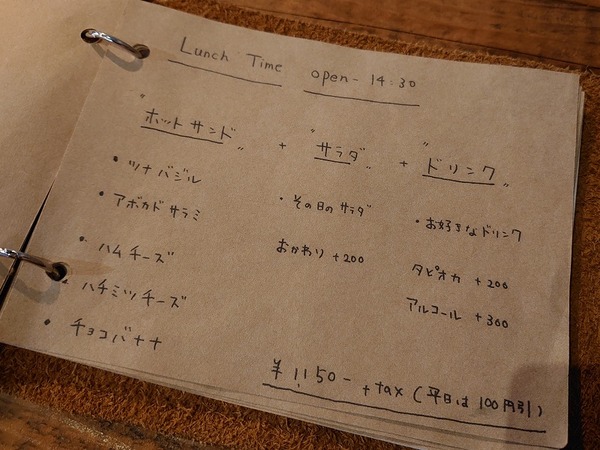 Lunch Time open- 14:30
"ホットサンド" + "サラダ" + "ドリンク"
・ツナバジル
・アボカドサラミ
・ハムチーズ
・ハチミツチーズ
・チョコバナナ
・その日のサラダ
おかわり +200
・お好きなドリンク
タピオカ +200
アルコール +300
¥1,150- +tax (平日は100円引)